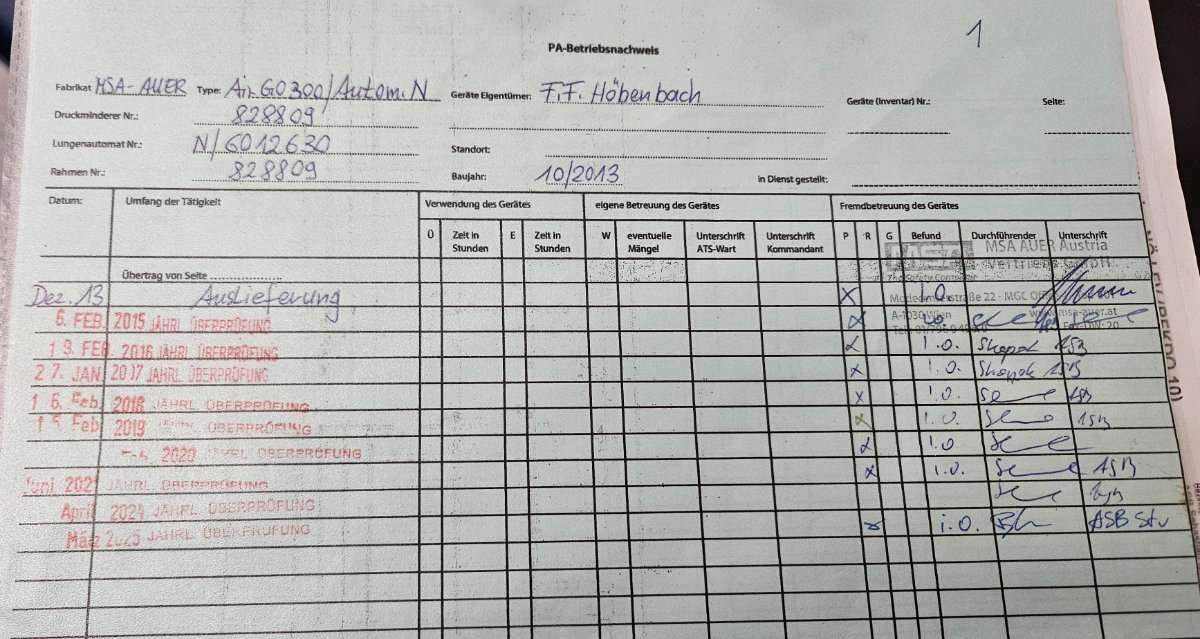 1
PA-Betriebsnachweis
Fabrikat MSA-AUER Type: AirGO300/Autom.N Geräte Eigentümer: F.F. Höbenbach Geräte (Inventar) Nr.: Seite:
Druckminderer Nr.: 828809
Lungenautomat Nr.: N/6012630 Standort:
Rahmen Nr.: 828809 Baujahr: 10/2013 in Dienst gestellt:
Datum: Umfang der Tätigkeit Verwendung des Gerätes eigene Betreuung des Gerätes Fremdbetreuung des Gerätes
Ü Zeit in Stunden E Zeit in Stunden W eventuelle Mängel Unterschrift ATS-Wart Unterschrift Kommandant P R G Befund Durchführender Unterschrift
MSA AUER Austria
Übertrag von Seite Vertriebs GmbH
The Safety Company
Dez. 13 Auslieferung x i.O.
straße 22 - MGC
6. FEB. 2015 JÄHRL. ÜBERPRÜFUNG i.o. A-1030 Wien www.msa-auer.at
19. FEB. 2016 JÄHRL. ÜBERPRÜFUNG i.o.
27. JAN. 2017 JÄHRL. ÜBERPRÜFUNG x i.o.
16. Feb. 2018 JÄHRL. ÜBERPRÜFUNG x i.o.
15. Feb 2019 ÜBERPRÜFUNG i.o.
2020 JÄHRL. ÜBERPRÜFUNG i.o
Juni 2021 JÄHRL. ÜBERPRÜFUNG x i.o. ASB
April 2024 JÄHRL. ÜBERPRÜFUNG
März 2025 JÄHRL. ÜBERPRÜFUNG i.O. ASB Stv